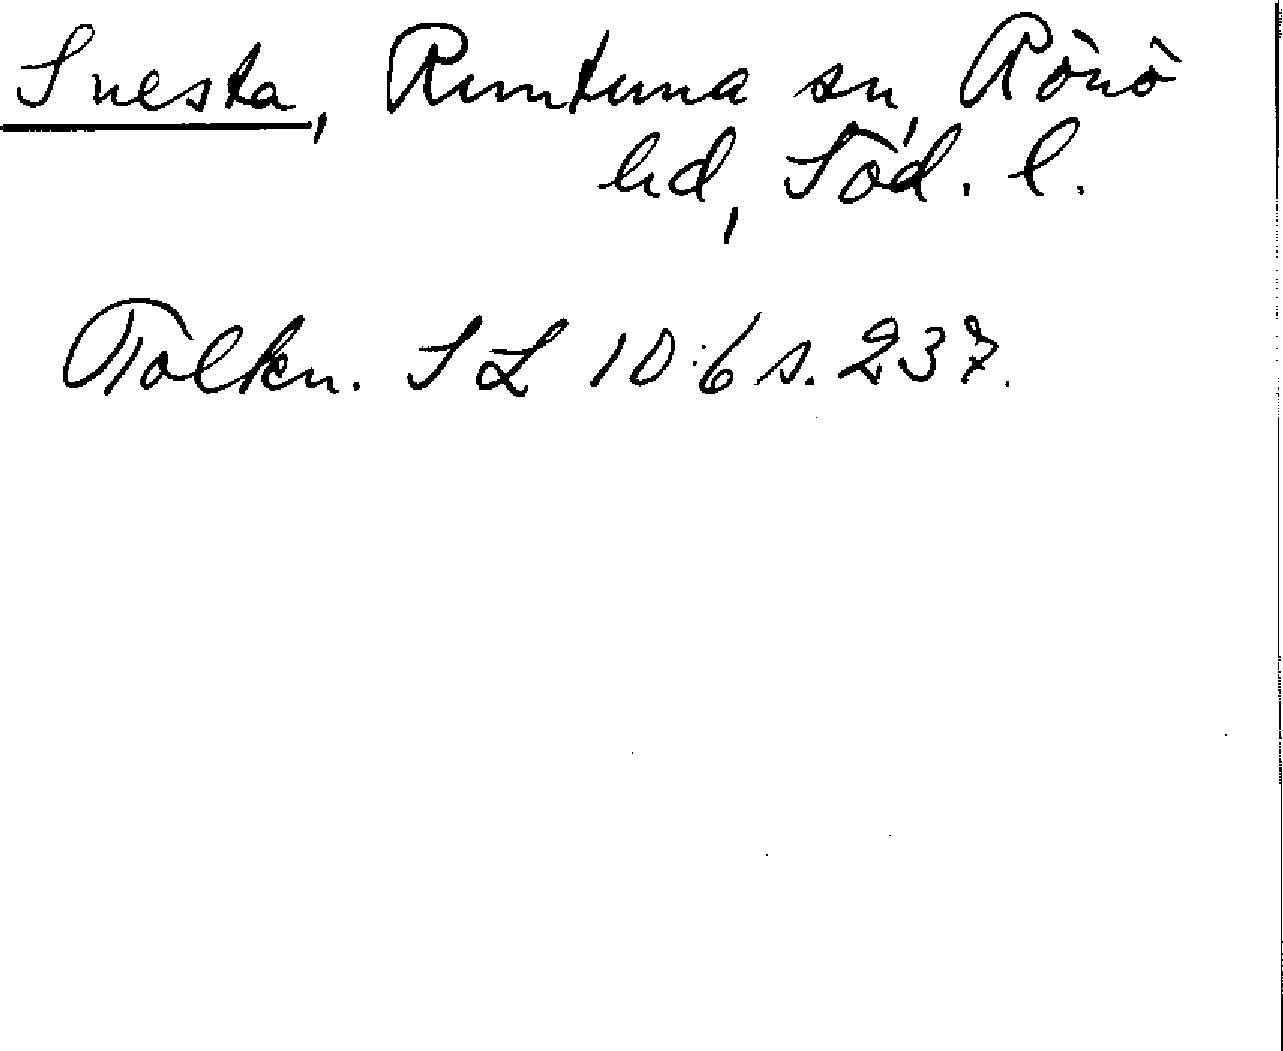 Snesta, Runtuna sn, Rönö
hd, Söd. l.
Tolkn. SL 10:6 s. 237.